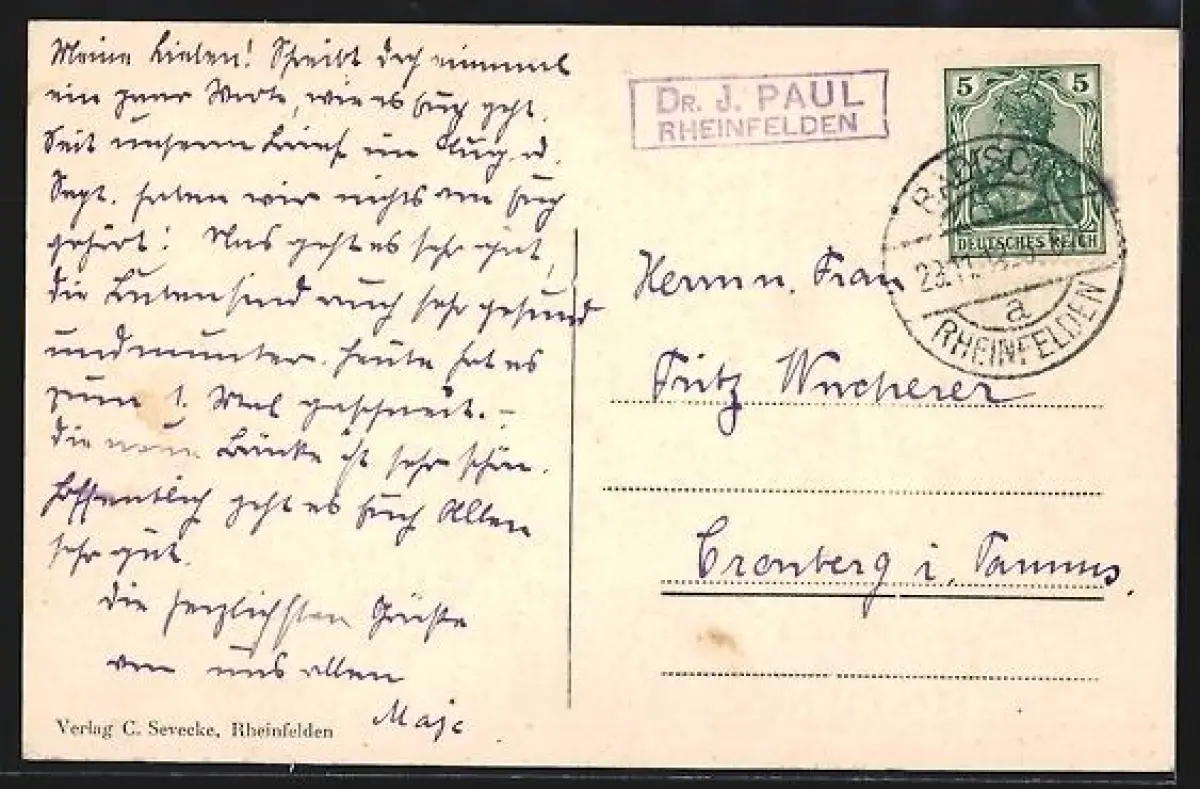 Meine Lieben! Schreibt doch einmal
ein paar Worte, wie es Euch geht.
Seit unserem Brief im Aug. od.
Sept. haben wir nichts von Euch
gehört! Uns geht es sehr gut,
die Buben sind auch sehr gesund
und munter. Heute hat es
zum 1. Mal geschneit. –
die neue Brücke ist sehr schön.
Hoffentlich geht es Euch Allen
sehr gut.
Die herzlichsten Grüße
von uns allen
Verlag C. Sevecke, Rheinfelden
DR. J. PAUL
RHEINFELDEN
5 5
DEUTSCHES REICH
BADISCH
a
RHEINFELDEN
Herrn u. Frau
Fritz Wucherer
Cronberg i. Taunus.